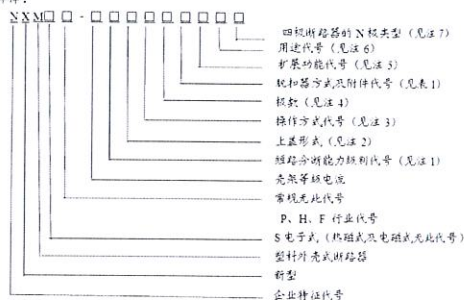 NXM□□-□□□□□□□□□
四极断路器的N极类型（见注7）
用途代号（见注6）
扩展功能代号（见注5）
脱扣器方式及附件代号（见表1）
极数（见注4）
操作方式代号（见注3）
上盖形式（见注2）
短路分断能力级别代号（见注1）
壳架等级电流
常规无此代号
P、H、F 行业代号
S 电子式（热磁式及电磁式无此代号）
塑料外壳式断路器
新型
企业特征代号